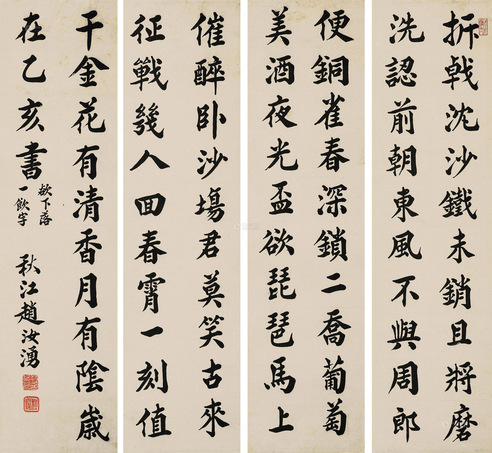 折戟沈沙鐵未銷且將磨
洗認前朝東風不與周郎
便銅雀春深鎖二喬葡萄
美酒夜光盃欲琵琶馬上
催醉卧沙場君莫笑古來
征戰幾人回春霄一刻值
千金花有清香月有陰歲
在乙亥書
欲下落
一飲字
秋江趙汝湧